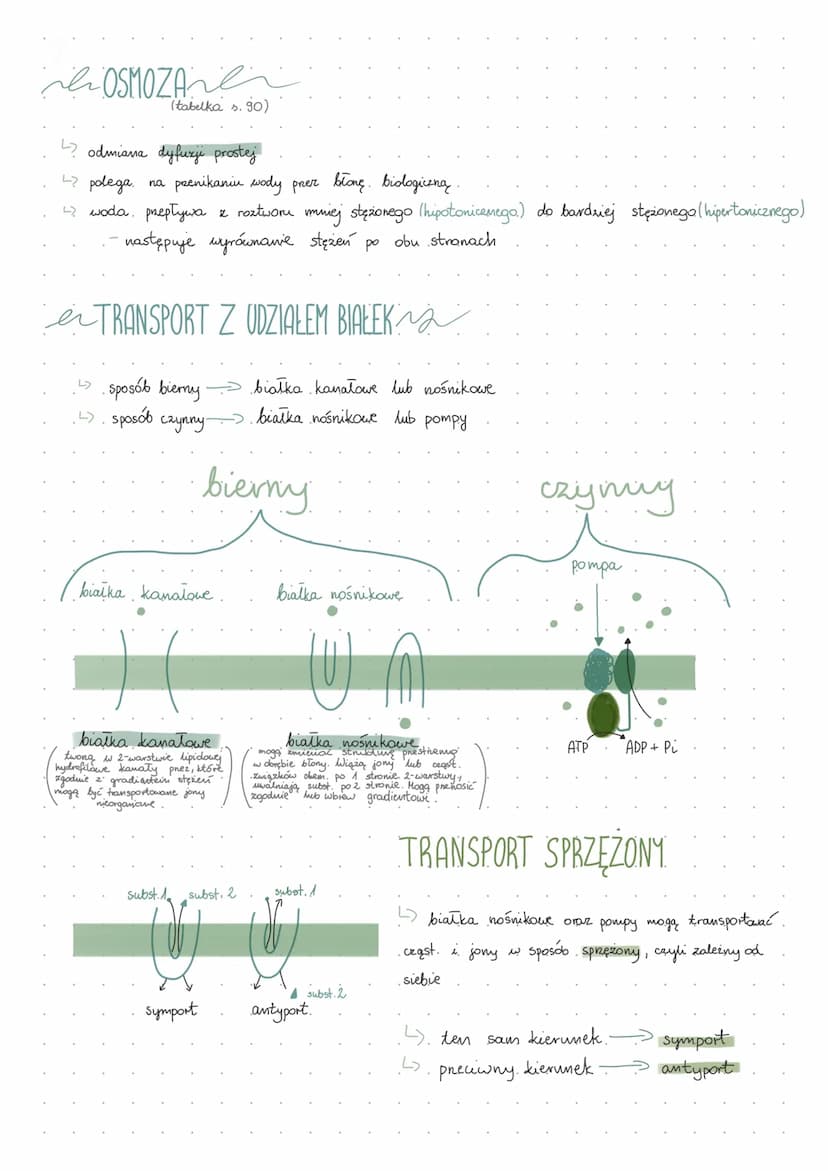 OSMOZA
(tabelka s. 90)
↳ odmiana dyfuzji prostej
↳ polega na przenikaniu wody przez błonę biologiczną
↳ woda przepływa z roztworu mniej stężonego (hipotonicznego) do bardziej stężonego (hipertonicznego)
- następuje wyrównanie stężeń po obu stronach
TRANSPORT Z UDZIAŁEM BIAŁEK
↳ sposób bierny → białka kanałowe lub nośnikowe
↳ sposób czynny → białka nośnikowe lub pompy
bierny
czynny
pompa
białka kanałowe
białka nośnikowe
białka kanałowe
(tworzą w 2-warstwie lipidowej
hydrofilowe kanały przez, które
zgodnie z gradientem stężeń
mogą być transportowane jony
nieorganiczne)
białka nośnikowe
(mogą zmieniać strukturę przestrzenną
w obrębie błony. Wiążą jony lub cząst.
związków chem. po 1 stronie 2-warstwy,
uwalniają subst. po 2 stronie. Mogą przenosić
zgodnie lub wbrew gradientowi.)
ATP
ADP + Pi
TRANSPORT SPRZĘŻONY
subst. 1
subst. 2
subst. 1
subst. 2
symport
antyport
↳ białka nośnikowe oraz pompy mogą transportować
cząst. i jony w sposób sprzężony, czyli zależny od
siebie
↳ ten sam kierunek → symport
↳ przeciwny kierunek → antyport